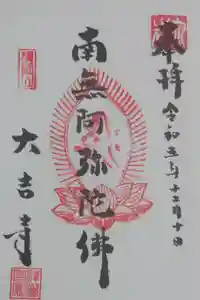 奉拝
令和三年十二月十日
南無阿弥陀佛
大吉寺